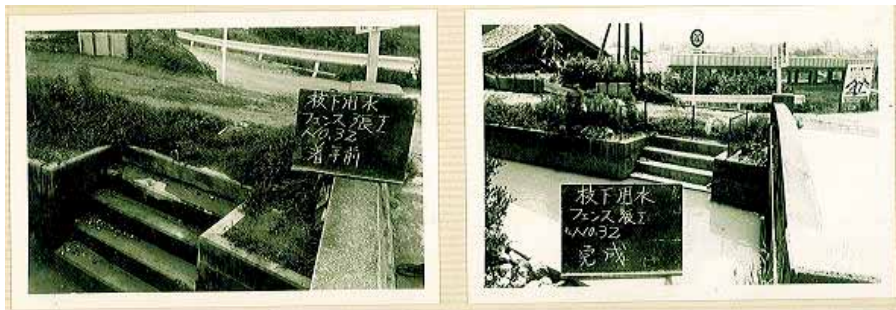 枝下用水
フェンス張工
No.32
着手前
枝下用水
フェンス張工
No.32
完成